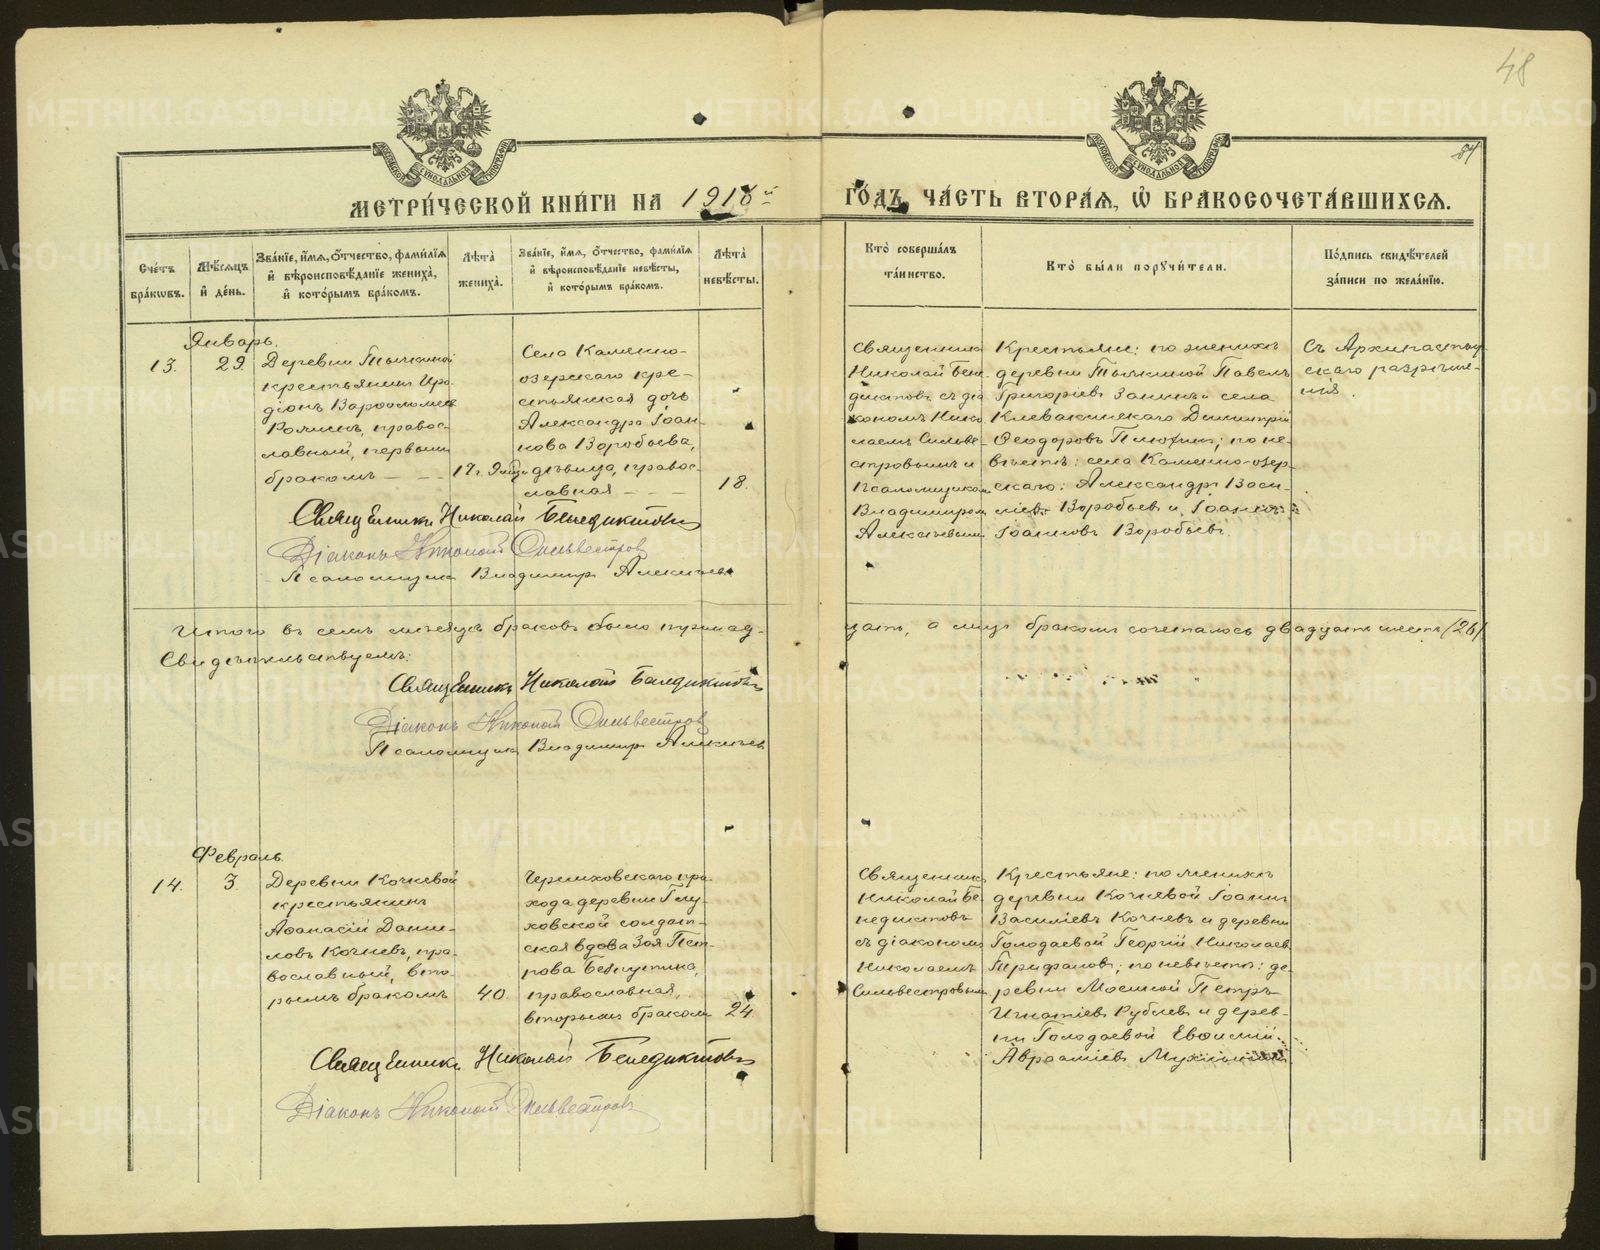 48
84
МЕТРИ́ЧЕСКОЙ КНИ́ГИ НА 1918й ГО́ДЪ ЧА́СТЬ ВТОРА́Я, Ѽ БРАКОСОЧЕТА́ВШИХСѦ.
Сче́тъ бра́кѡвъ.
Мѣ́сяцъ и҆ де́нь.
Зва́нїе, и҆́мя, ѻ҆́тчество, фами́лїя и҆ вѣроисповѣ́данїе жениха̀, и҆ кото́рымъ бра́комъ.
Лѣ́та жениха̀.
Зва́нїе, и҆́мя, ѻ҆́тчество, фами́лїя и҆ вѣроисповѣ́данїе невѣ́сты, и҆ кото́рымъ бра́комъ.
Лѣ́та невѣ́сты.
Кто̀ соверша́лъ та́инство.
Кто̀ бы́ли порꙋчи́тели.
По́дпись свидѣ́телей за́писи по жела́нїю.
Январь.
13.
29.
Деревни
крестьянинъ Иро-
діонъ Варѳоломеев
правос-
лавный, первымъ
бракомъ
17 г.
Села Каменно-
озерскаго кре-
стьянская дочь
Александра Іоан-
нова Воробьева,
дѣвица, правос-
лавная
18.
Священник
Николай Бене-
диктовъ съ діа-
кономъ Нико-
лаемъ Сильве-
стровымъ и
Псаломщиком
Владимиром
Алексѣевым
Крестьяне: по женихѣ
деревни Павелъ
Григоріевъ и села
Клевакинскаго Димитрій
Ѳеодоровъ по не-
вѣстѣ: села Каменно-озер-
скаго: Александръ Васи-
ліевъ Воробьев и Іоаннъ
Іоанновъ Воробьев.
Съ Архипастыр-
скаго разрѣше-
нія.
Священникъ Николай Бенедиктовъ
Діаконъ Николай Сильвестров
Псаломщикъ Владимир Алексѣев
Итого въ семъ мѣсяцѣ браковъ было тринад-
цать, а лицъ бракомъ сочеталось двадцать шесть (26)
Свидѣтельствуемъ:
Священникъ Николай Бенедиктовъ
Діаконъ Николай Сильвестров
Псаломщикъ Владимир Алексѣев
Февраль.
14.
3.
Деревни Кочневой
крестьянинъ
Аѳанасій Дани-
ловъ Кочневъ, пра-
вославный, вто-
рымъ бракомъ
40.
Черемховскаго при-
хода деревни Глу-
ховской солдат-
ская вдова Зоя Пет-
рова
православная,
вторымъ браком
24.
Священник
Николай Бе-
недиктовъ
съ діакономъ
Николаемъ
Сильвестровым
Крестьяне: по женихѣ
деревни Кочневой Іоаннъ
Василіевъ Кочневъ и деревни
Голодаевой Георгій Николаев
Трифановъ; по невѣстѣ: де-
ревни Мосиной Петръ
Игнатіевъ Рублевъ и дерев-
ни Голодаевой Евѳимій
Авраміевъ
Священникъ Николай Бенедиктовъ
Діаконъ Николай Сильвестров
METRIKI.GASO-URAL.RU